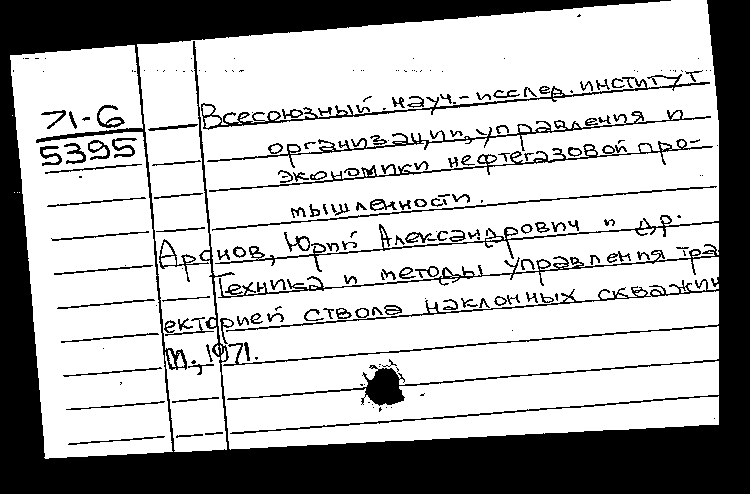 71-6
5395
Всесоюзный науч.-исслед. институт
организации, управления и
экономики нефтегазовой про-
мышленности.
Аронов, Юрий Александрович и др.
Техника и методы управления тра
екторией ствола наклонных скважин
М., 1971.